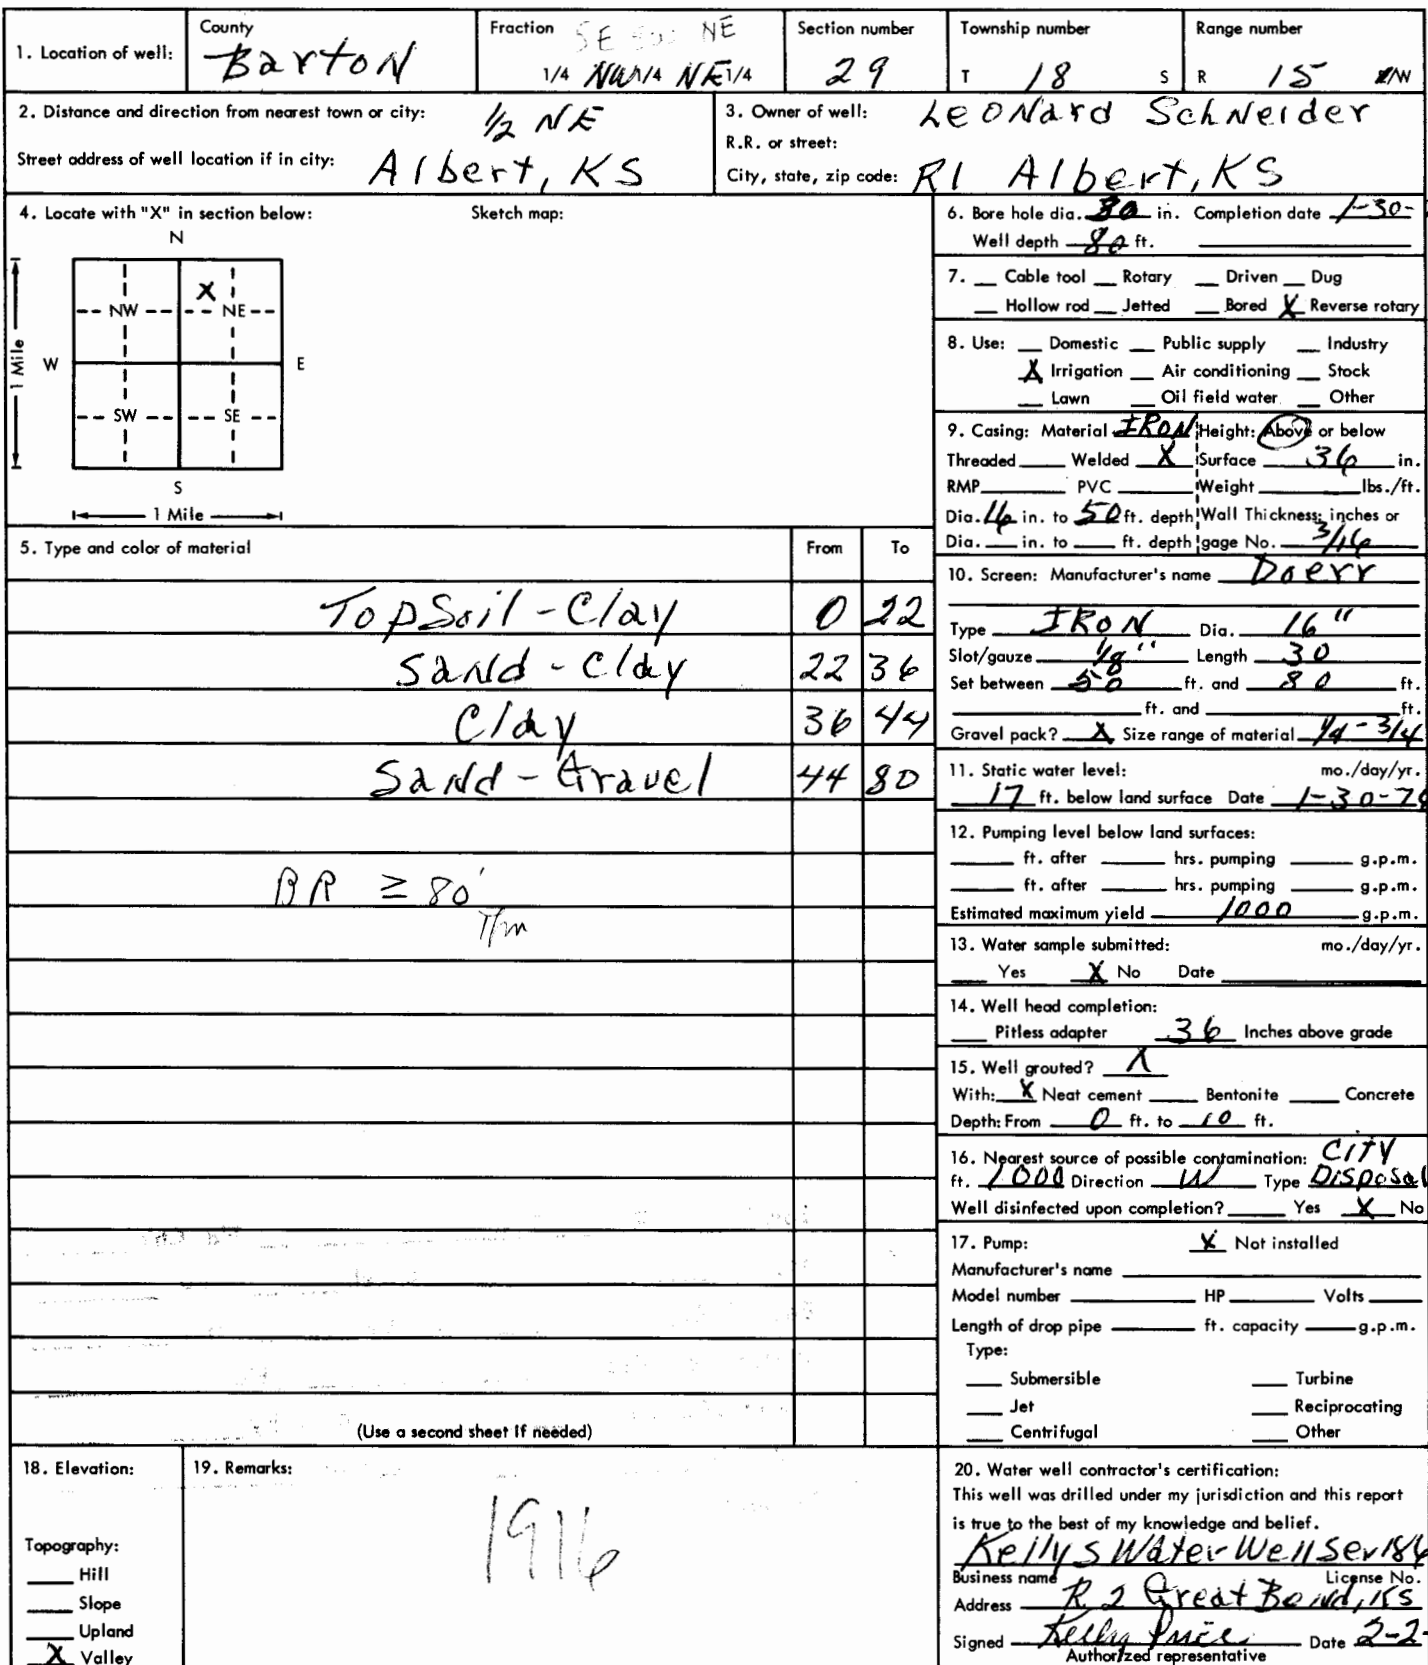 1. Location of well: County Barton Fraction SE NE 1/4 NW 1/4 NE 1/4 Section number 29 Township number T 18 S Range number R 15 E/W
2. Distance and direction from nearest town or city: 1/2 NE
Street address of well location if in city: Albert, KS
3. Owner of well: Leonard Schneider
R.R. or street:
City, state, zip code: R1 Albert, KS
4. Locate with "X" in section below: Sketch map:
N
X
NW NE
W E
1 Mile
SW SE
S
1 Mile
5. Type and color of material From To
TopSoil - Clay 0 22
Sand - Clay 22 36
Clay 36 44
Sand - Gravel 44 80
BR ≥ 80'
(Use a second sheet if needed)
6. Bore hole dia. 30 in. Completion date 1-30-
Well depth 80 ft.
7. Cable tool Rotary Driven Dug
Hollow rod Jetted Bored X Reverse rotary
8. Use: Domestic Public supply Industry
X Irrigation Air conditioning Stock
Lawn Oil field water Other
9. Casing: Material IRON Height: Above or below
Threaded Welded X Surface 36 in.
RMP PVC Weight lbs./ft.
Dia. 16 in. to 50 ft. depth Wall Thickness: inches or
Dia. in. to ft. depth gage No. 3/16
10. Screen: Manufacturer's name Doerr
Type IRON Dia. 16"
Slot/gauze 1/8" Length 30
Set between 50 ft. and 80 ft.
ft. and ft.
Gravel pack? X Size range of material 1/4 - 3/4
11. Static water level: mo./day/yr.
17 ft. below land surface Date 1-30-78
12. Pumping level below land surfaces:
ft. after hrs. pumping g.p.m.
ft. after hrs. pumping g.p.m.
Estimated maximum yield 1000 g.p.m.
13. Water sample submitted: mo./day/yr.
Yes X No Date
14. Well head completion:
Pitless adapter 36 Inches above grade
15. Well grouted? X
With: X Neat cement Bentonite Concrete
Depth: From 0 ft. to 10 ft.
16. Nearest source of possible contamination: City
ft. 1000 Direction W Type Disposal
Well disinfected upon completion? Yes X No
17. Pump: X Not installed
Manufacturer's name
Model number HP Volts
Length of drop pipe ft. capacity g.p.m.
Type:
Submersible Turbine
Jet Reciprocating
Centrifugal Other
18. Elevation:
Topography:
Hill
Slope
Upland
X Valley
19. Remarks:
1916
20. Water well contractor's certification:
This well was drilled under my jurisdiction and this report
is true to the best of my knowledge and belief.
Kellys Water Well Ser 186
Business name License No.
Address R 2 Great Bend, KS
Signed Kelly Price Date 2-2-
Authorized representative